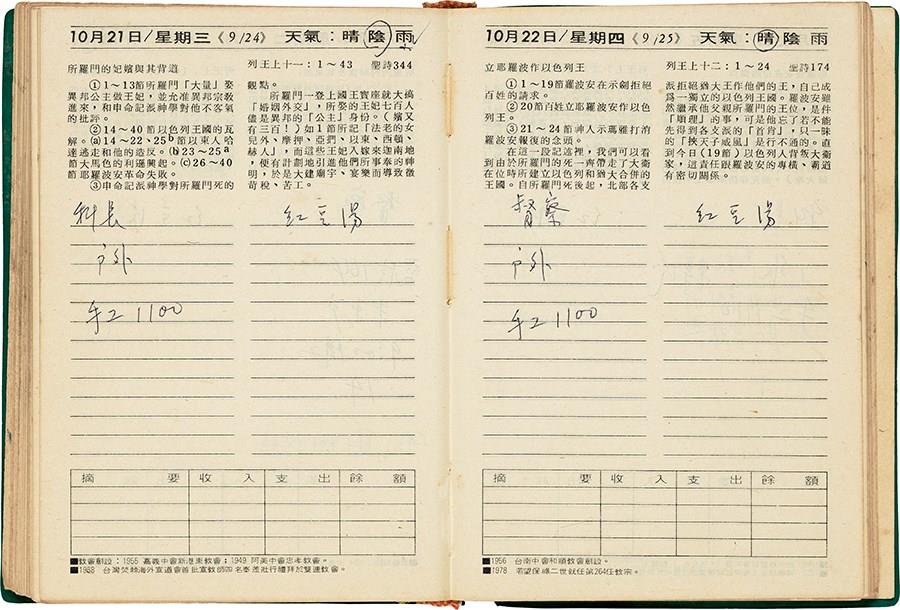 10月21日/星期三《9/24》 天氣：晴陰雨
所羅門的妃嬪與其背道
列王上十一：1～43 聖詩344
①1～13節所羅門「大量」娶
異邦公主做王妃，並允准異邦宗教
進來，和申命記派神學對他不客氣
的批評。
②14～40節以色列王國的瓦
解。(a)14～22、25ᵇ節以東人哈
達逃走和他的造反。(b)23～25ᵃ
節大馬色的利遜興起。(c)26～40
節耶羅波安革命失敗。
③申命記派神學對所羅門死的
觀點。
所羅門一登上國王寶座就大搞
「婚姻外交」，所娶的王妃七百人
儘是異邦的「公主」身份。（嬪又
有三百！）如1節所記「法老的女
兒外、摩押、亞捫、以東、西頓、
赫人」，而這些王妃入嫁來迦南地
，便有計劃地引進他們所事奉的神
明，於是大建廟宇、宴樂而導致徵
苛稅、苦工。
科長
紅豆湯
戶外
手工1100
摘 要 收 入 支 出 餘 額
■教會創設：1955 嘉義中會新港東教會；1949 阿美中會忠孝教會。
■1988 台灣焚物海外宣道會首批宣教師四名奉差壯行禮拜於雙連教會。
10月22日/星期四《9/25》 天氣：晴陰雨
立耶羅波作以色列王
列王上十二：1～24 聖詩174
①1～19節羅波安在示劍拒絕
百姓的請求。
②20節百姓立耶羅波安作以色
列王。
③21～24節神人示瑪雅打消
羅波安報復的念頭。
在這一段記述裡，我們可以看
到由於所羅門的死一齊帶走了大衛
在位時所建立以色列和猶大合併的
王國。自所羅門死後起，北部各支
派拒絕猶大王作他們的王，自己成
爲一獨立的以色列王國。羅波安雖
然繼承他父親所羅門的王位，是件
「順理」的事，可是他忘了若不能
先得到各支派的「首肯」，只一昧
的「挾天子威風」是行不通的。直
到今日（19節）以色列人背叛大衛
家，這責任跟羅波安的專橫、霸道
有密切關係。
督察
紅豆湯
戶外
手工1100
摘 要 收 入 支 出 餘 額
■1956 台南中會和順教會創設。
■1978 若望保祿二世就任第264任教宗。